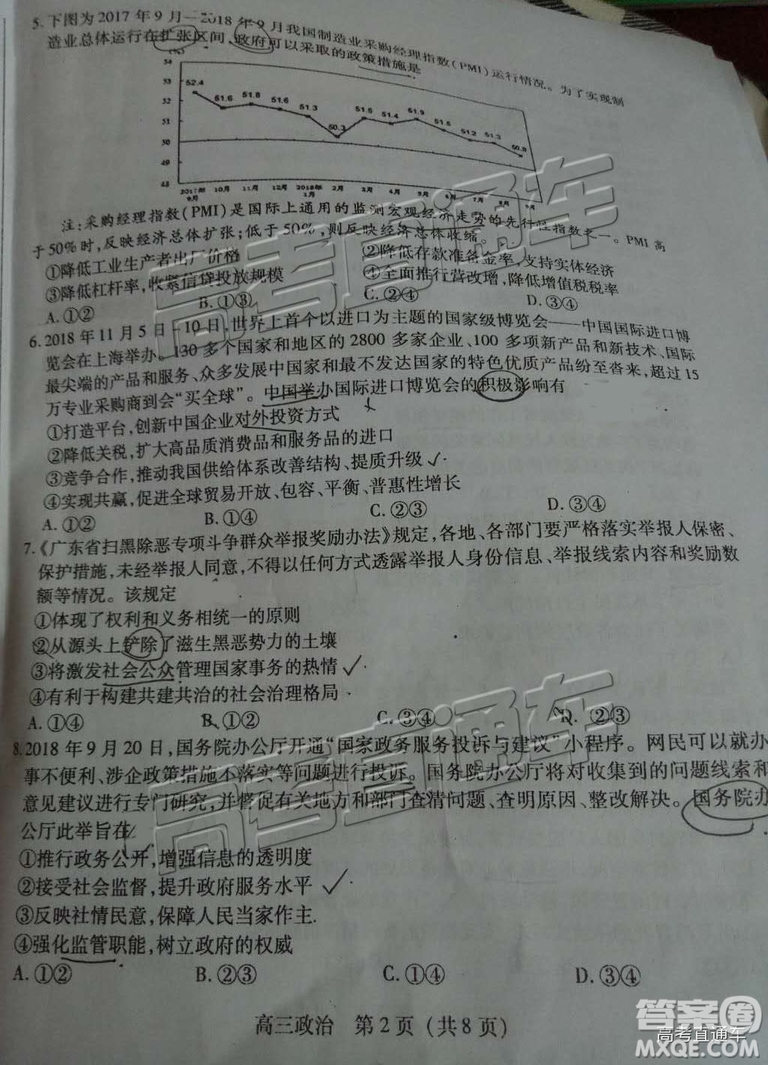 5.下图为2017年9月—2018年9月我国制造业采购经理指数(PMI)运行情况。为了实现制
造业总体运行在扩张区间,政府可以采取的政策措施是
(%)
54
52
50
48
52.4
51.6
51.8
51.6
51.3
50.3
51.5
51.4
51.9
51.5
51.2
51.3
50.8
2017年
9月
10月
11月
12月
2018年
1月
2月
3月
4月
5月
6月
7月
8月
9月
注:采购经理指数(PMI)是国际上通用的监测宏观经济走势的先行性指数之一。PMI高
于50%时,反映经济总体扩张;低于50%,则反映经济总体收缩。
①降低工业生产者出厂价格 ②降低存款准备金率,支持实体经济
③降低杠杆率,收紧信贷投放规模 ④全面推行营改增,降低增值税税率
A.①② B.①③ C.②④ D.③④
6.2018年11月5日-10日,世界上首个以进口为主题的国家级博览会——中国国际进口博
览会在上海举办。130多个国家和地区的2800多家企业、100多项新产品和新技术、国际
最尖端的产品和服务、众多发展中国家和最不发达国家的特色优质产品纷至沓来,超过15
万专业采购商到会“买全球”。中国举办国际进口博览会的积极影响有
①打造平台,创新中国企业对外投资方式
②降低关税,扩大高品质消费品和服务品的进口
③竞争合作,推动我国供给体系改善结构、提质升级
④实现共赢,促进全球贸易开放、包容、平衡、普惠性增长
A.①② B.①③ C.②③ D.③④
7.《广东省扫黑除恶专项斗争群众举报奖励办法》规定,各地、各部门要严格落实举报人保密、
保护措施,未经举报人同意,不得以任何方式透露举报人身份信息、举报线索内容和奖励数
额等情况。该规定
①体现了权利和义务相统一的原则
②从源头上铲除了滋生黑恶势力的土壤
③将激发社会公众管理国家事务的热情
④有利于构建共建共治的社会治理格局
A.①④ B.①② C.③④ D.②③
8.2018年9月20日,国务院办公厅开通“国家政务服务投诉与建议”小程序。网民可以就办
事不便利、涉企政策措施不落实等问题进行投诉。国务院办公厅将对收集到的问题线索和
意见建议进行专门研究,并督促有关地方和部门查清问题、查明原因、整改解决。国务院办
公厅此举旨在
①推行政务公开,增强信息的透明度
②接受社会监督,提升政府服务水平
③反映社情民意,保障人民当家作主.
④强化监管职能,树立政府的权威
A.①② B.②③ C.①④ D.③④
高三政治 第2页(共8页)
高考直通车
高考直通车
答案圈
高考直通车
MXQE.COM